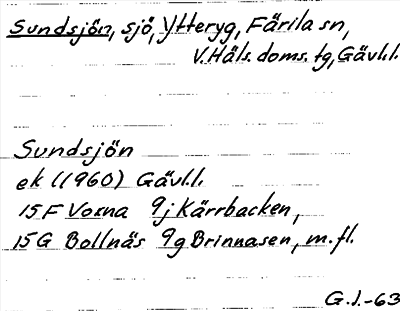 Sundsjön, sjö, Ytteryg, Färila sn,
V. Häls. doms. tg, Gävl.l.
Sundsjön
ek (1960) Gävl.l.
15F Voxna 9j Kärrbacken,
15G Bollnäs 9g Brinnasen, m.fl.
G.l.-63